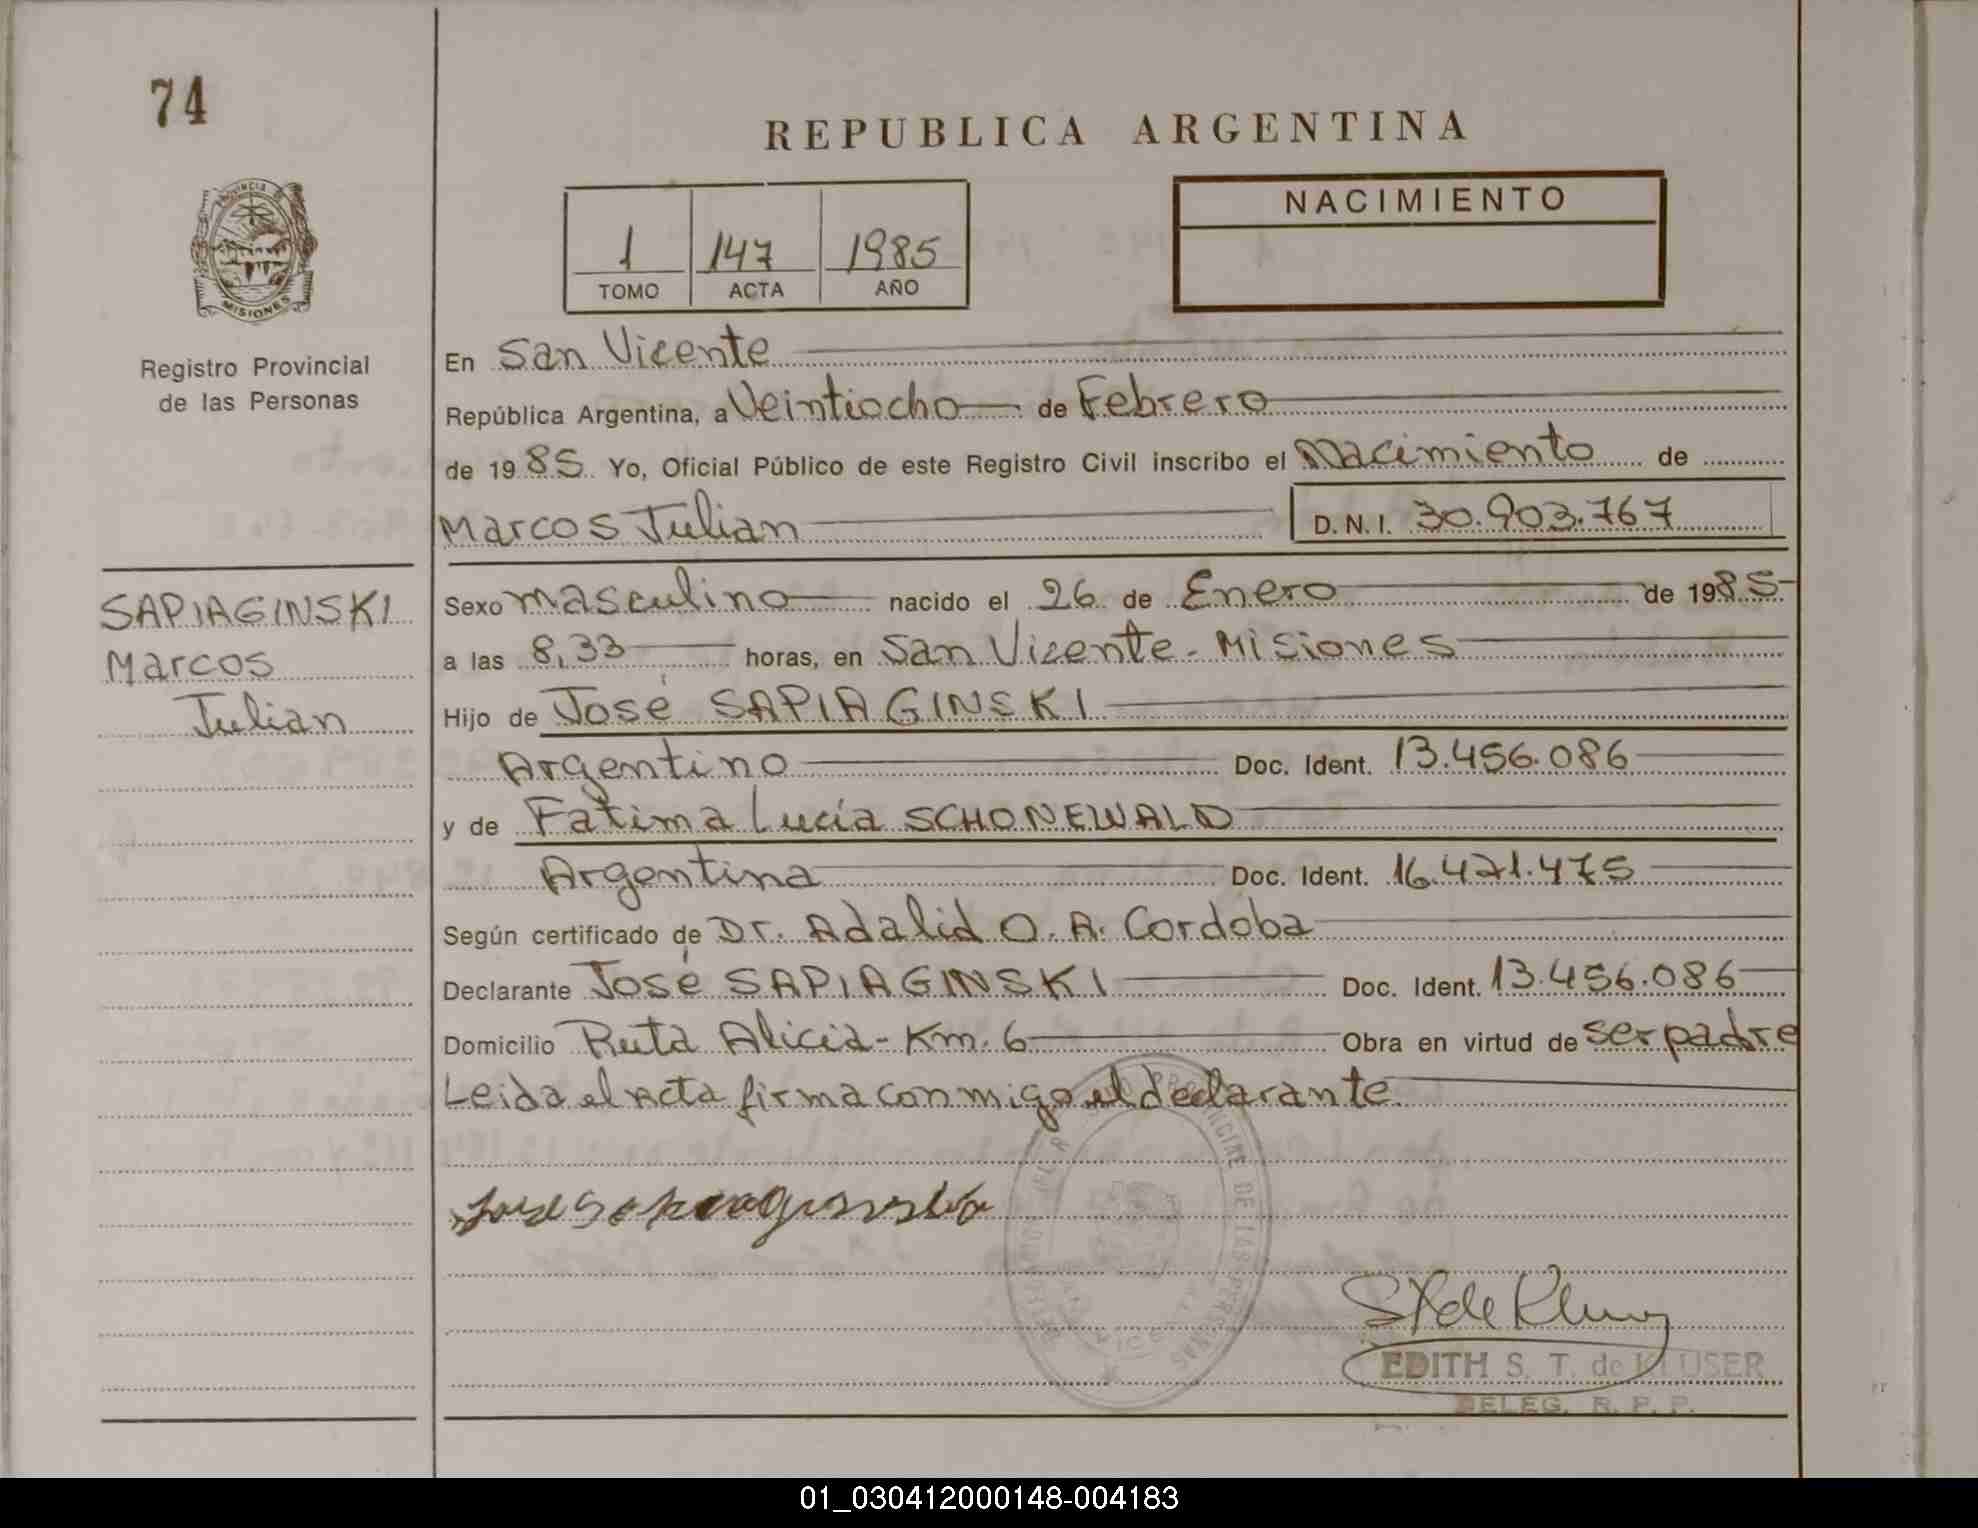 74
REPUBLICA ARGENTINA
PROVINCIA DE
MISIONES
Registro Provincial
de las Personas
1 147 1985
TOMO ACTA AÑO
NACIMIENTO
En San Vicente
República Argentina, a Veintiocho de Febrero
de 1985 Yo, Oficial Público de este Registro Civil inscribo el Nacimiento de
Marcos Julian D.N.I. 30.903.767
SAPIAGINSKI
Marcos
Julian
Sexo masculino nacido el 26 de Enero de 1985
a las 8,33 horas, en San Vicente - Misiones
Hijo de José SAPIAGINSKI
Argentino Doc. Ident. 13.456.086
y de Fatima Lucía SCHONEWALD
Argentina Doc. Ident. 16.421.475
Según certificado de Dr. Adalid O. A. Cordoba
Declarante José SAPIAGINSKI Doc. Ident. 13.456.086
Domicilio Ruta Alicia - Km. 6 Obra en virtud de ser padre
Leida el Acta firma conmigo el declarante
REGISTRO PROVINCIAL DE LAS PERSONAS
SAN VICENTE
EDITH S. T. de KLUSER
DELEG. R. P. P.
01_030412000148-004183